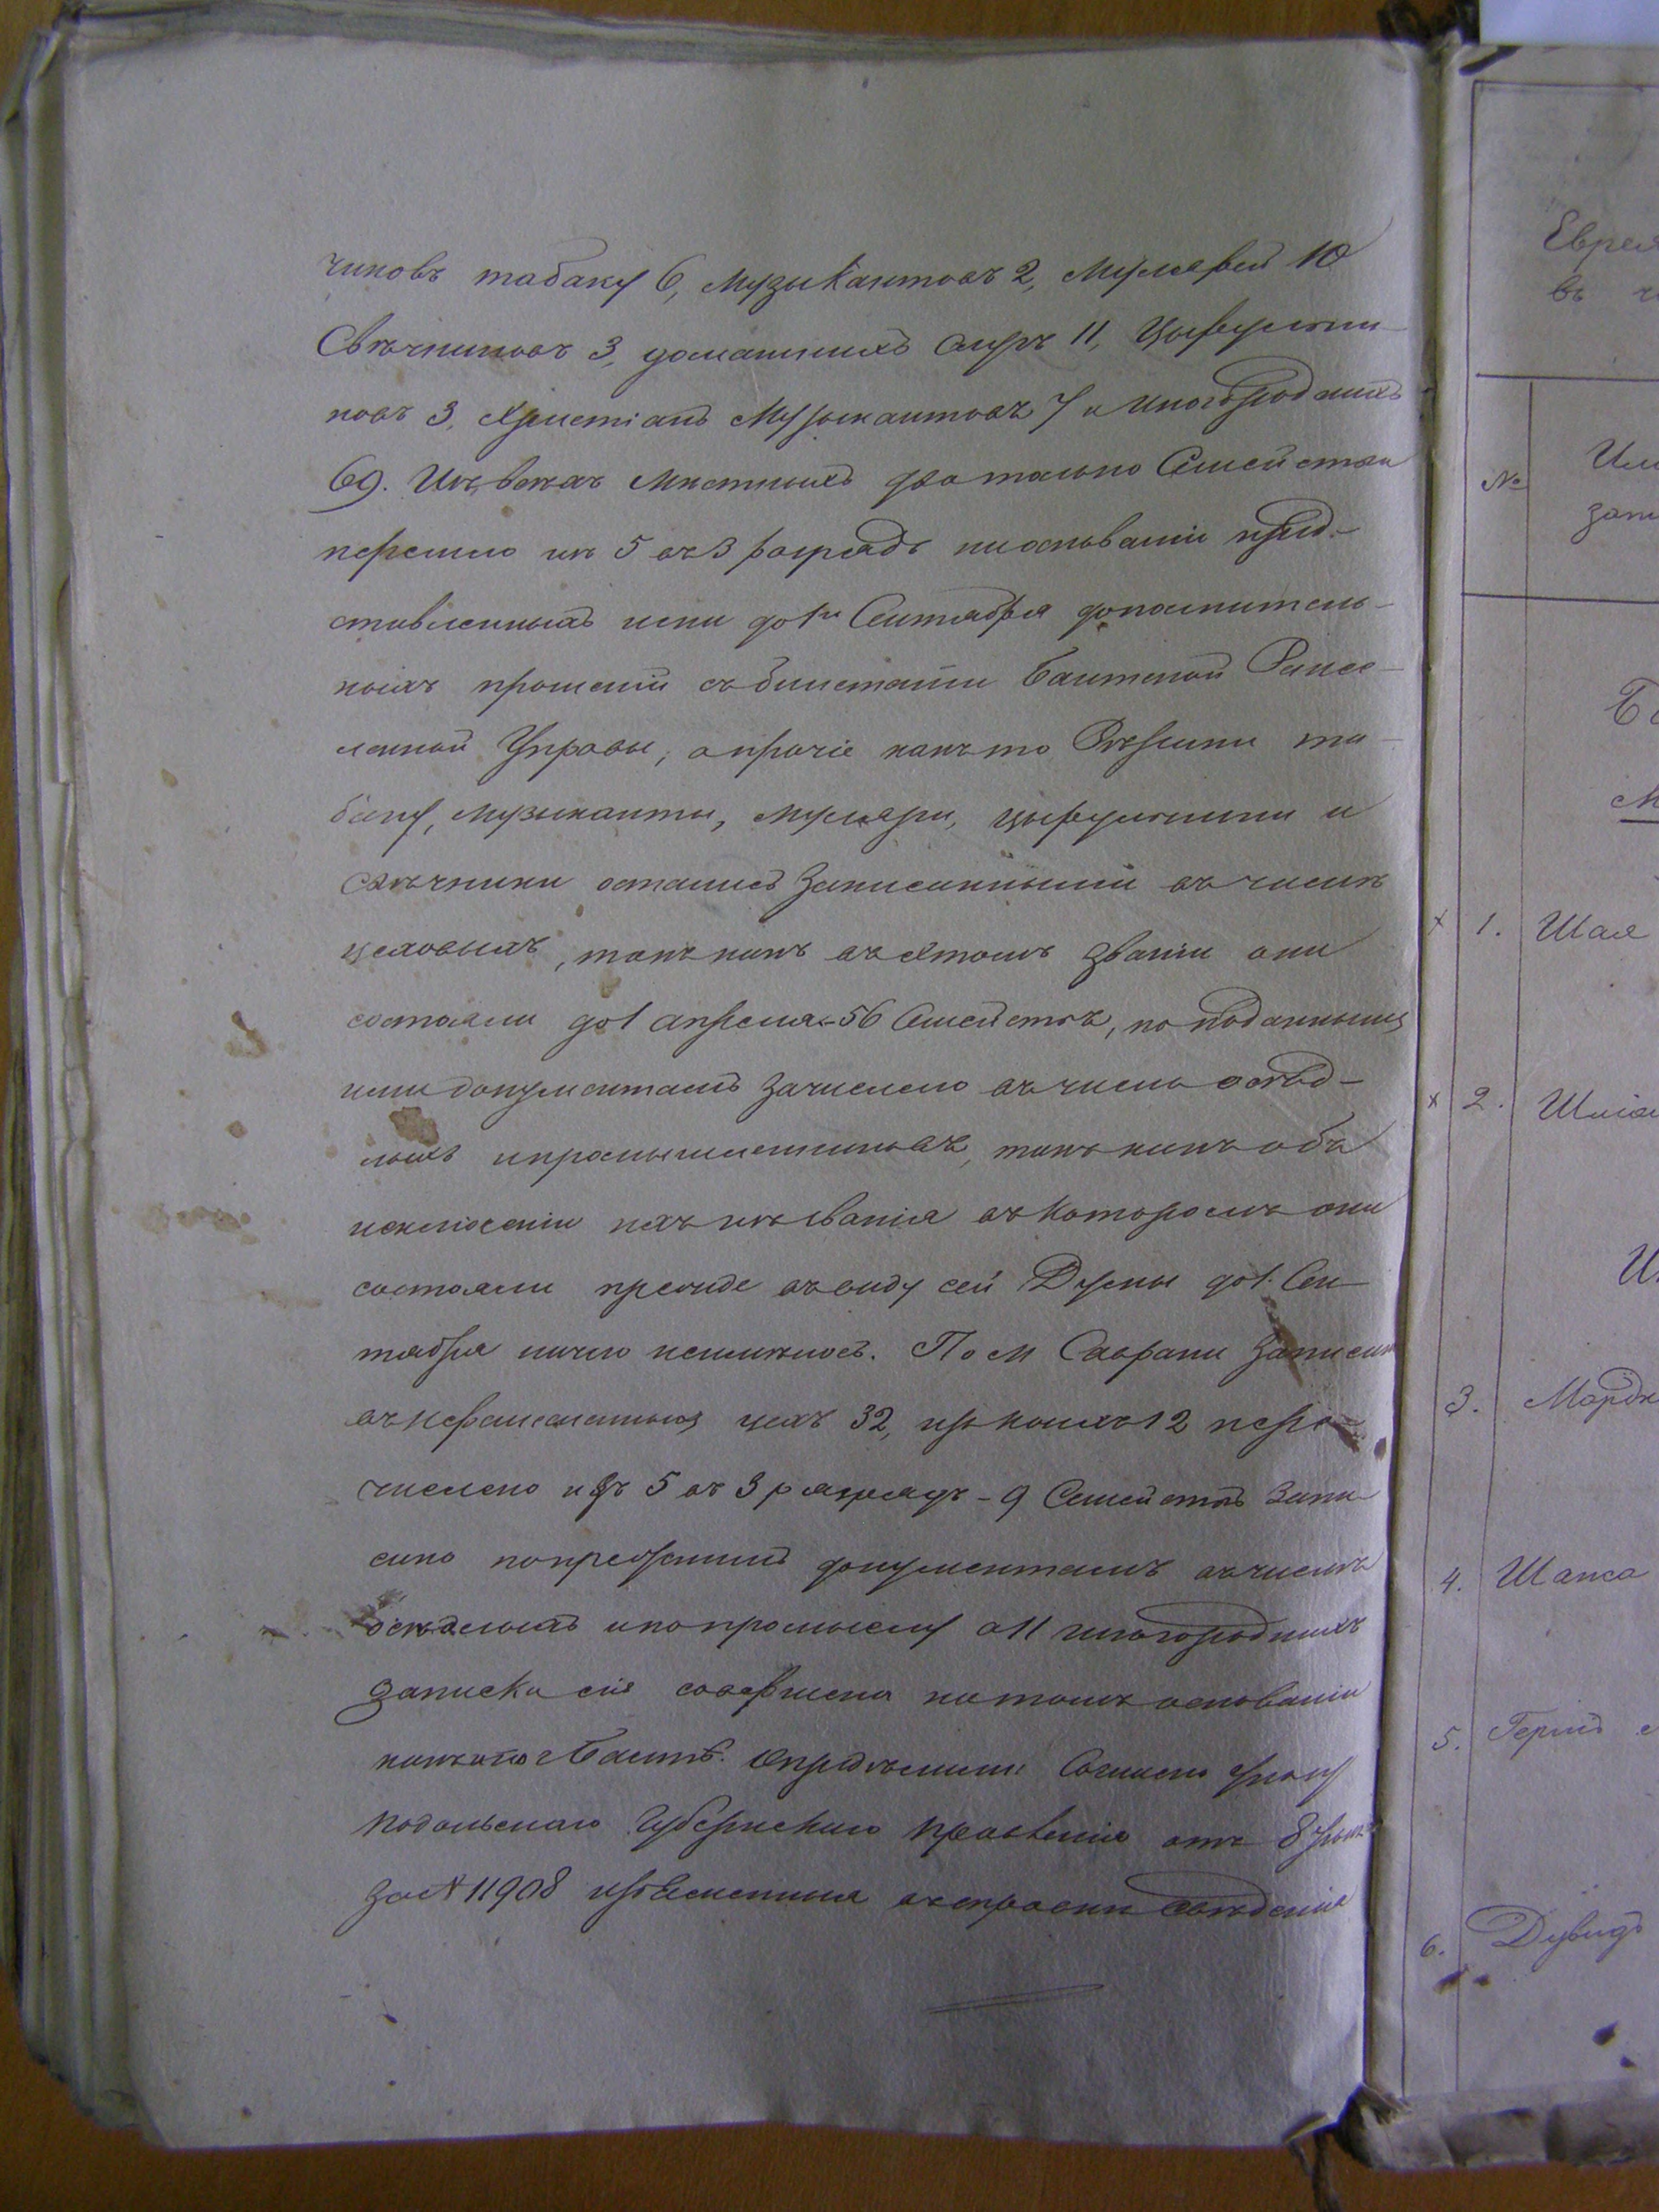 чиковъ табаку 6, Музыкантовъ 2, Мулярей 10
Свѣчниковъ 3, домашнихъ слугъ 11, Цырульни-
ковъ 3, Христіанъ Музыкантовъ 7 и иногородныхъ
69. Изъ всѣхъ мѣстныхъ два только Семейства
перешло изъ 5 въ 3 разрядъ на основаніи пред-
ставленныхъ ими до 1го Сентября дополнитель-
ныхъ прошеній съ билетами Балтской Ремес-
ленной Управы, а прочіе какъ то Рѣзчики та-
баку, Музыканты, Муляри, цырульники и
Свѣчники остались записанными въ числѣ
цеховыхъ, такъ какъ въ этомъ званіи они
состояли до 1 апрѣля - 56 Семействъ, по поданнымъ
ими документамъ зачислено въ число осѣд-
лыхъ и промышленниковъ, такъ какъ объ
исключеніи ихъ изъ званія въ которомъ они
состояли прежде въ виду сей Думы до 1. Сен-
тября ничего неимѣлось. По м Саврани записано
въ неремесленный цехъ 32, изъ коихъ 12 пере-
числено изъ 5 въ 3 разрядъ - 9 Семействъ запи-
сано по документамъ въ числѣ
осѣдлыхъ и по промыслу а 11 иногородныхъ
записка сія совершена на томъ основаніи
какъ и по г Балтѣ. Согласно указу
Подольскаго Губернскаго Правленія отъ 8
за № 11908 сведенія
Еврея
въ
№
1. Шая
2.
3. Мордк
4. Шапса
5. Герш
6. Дувидъ